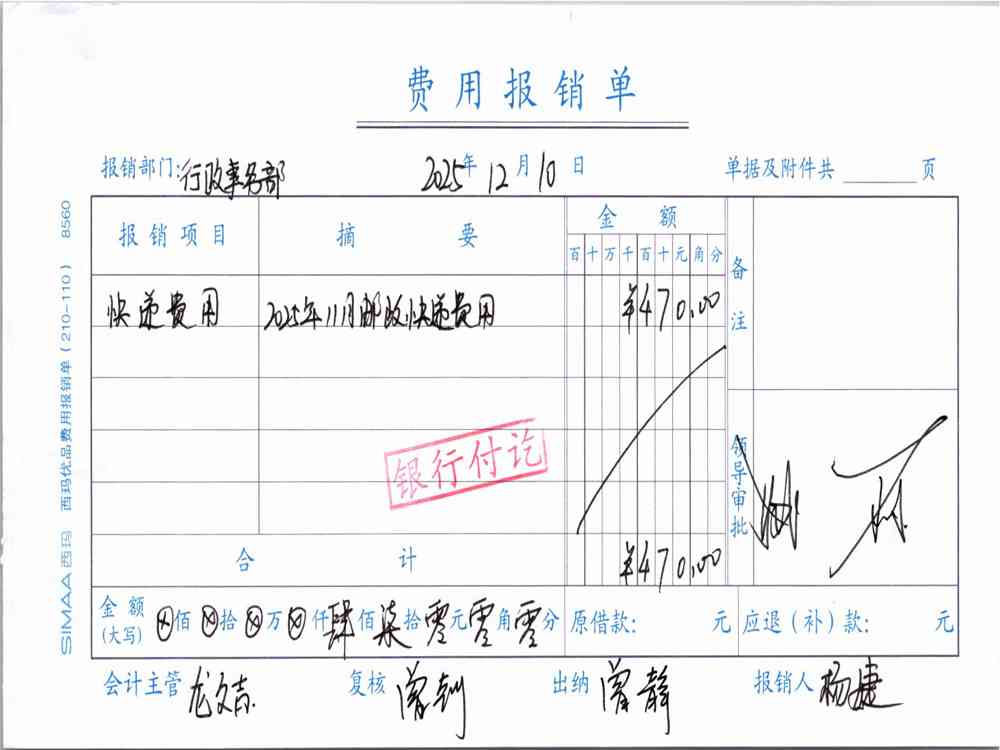 费用报销单
报销部门:行政事务部 2025年12月10日 单据及附件共 页
报销项目 摘要 金额 备注
百十万千百十元角分
快递费用 2025年11月邮政快递费用 ¥470.00
银行付讫
领导审批
合计 ¥470.00
金额(大写) ⊗佰⊗拾⊗万⊗仟肆佰柒拾零元零角零分 原借款: 元 应退(补)款: 元
会计主管 龙文吉 复核 曾钊 出纳 曾静 报销人 杨捷
SIMAA西玛 西玛优品费用报销单(210-110) 8560